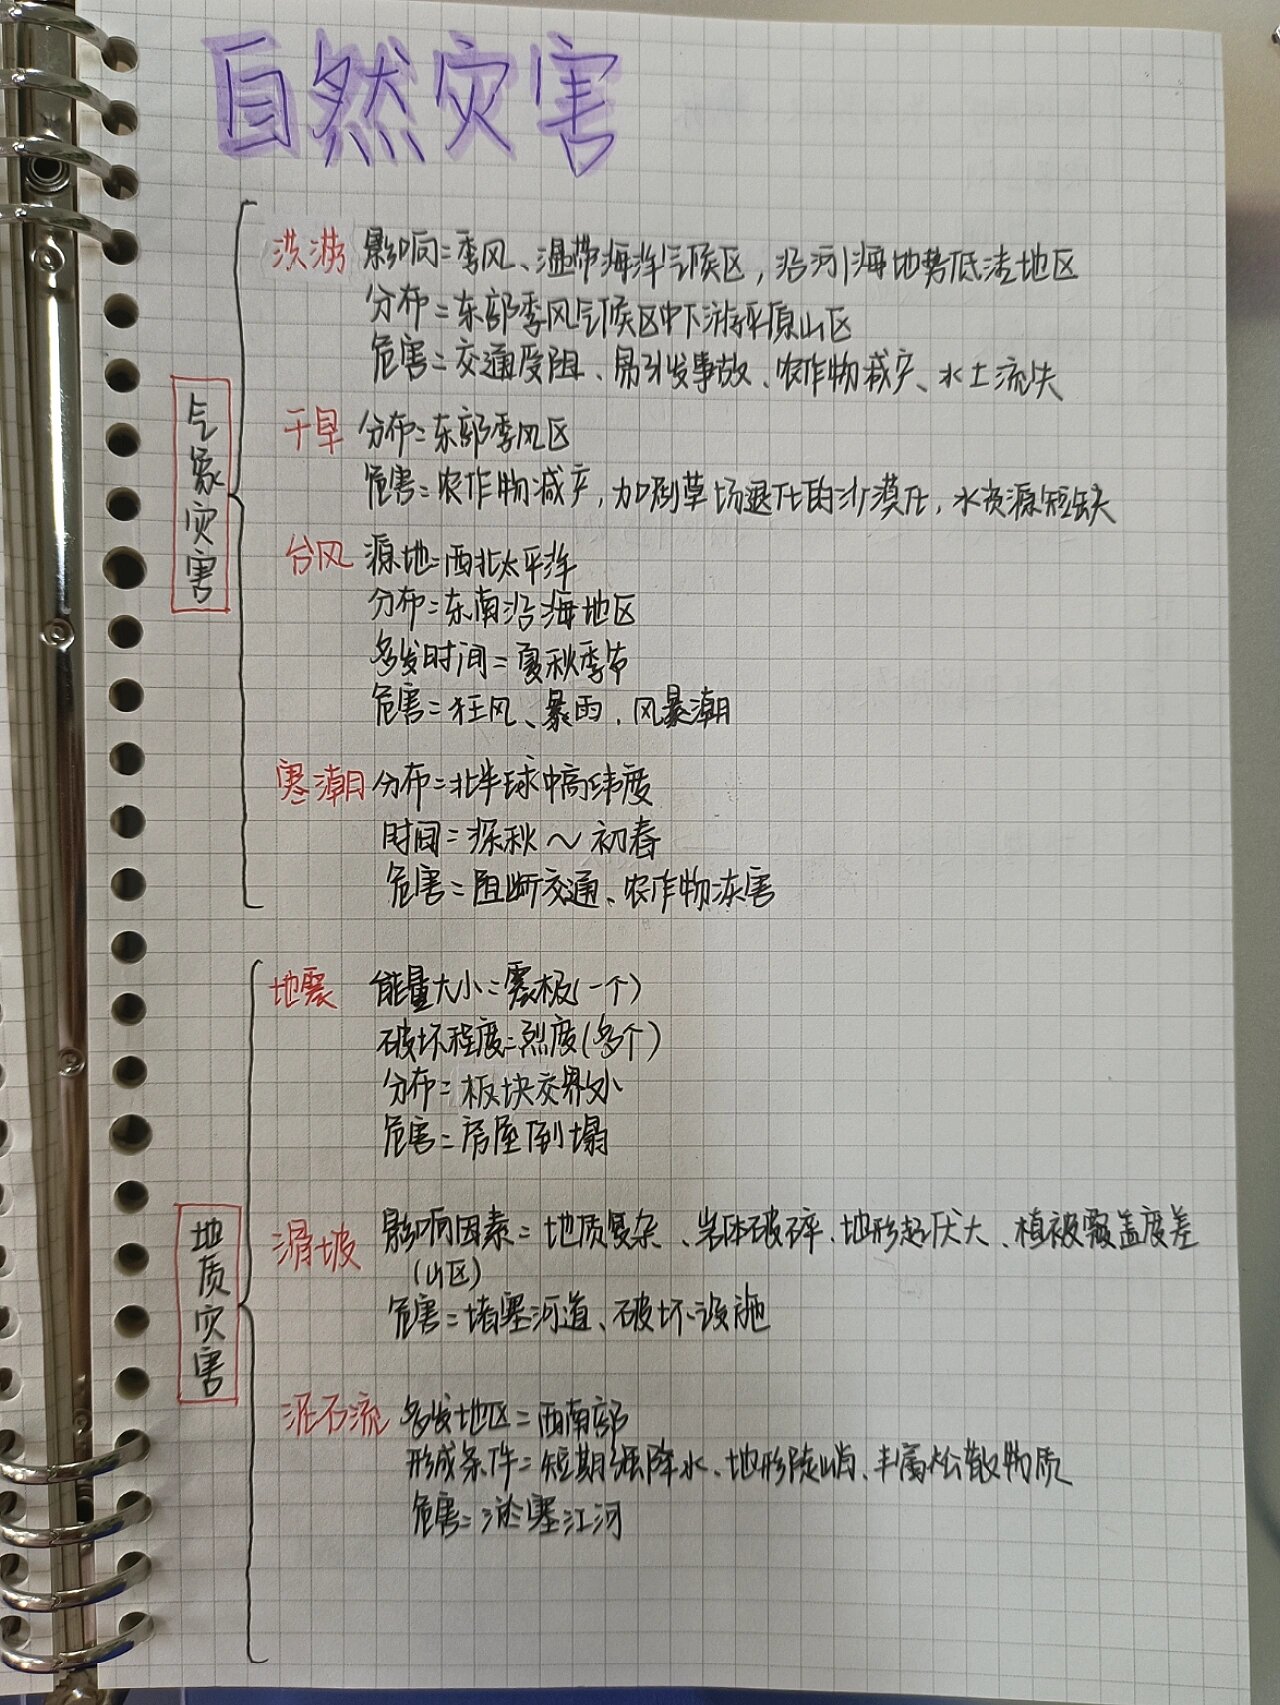 自然灾害
气象灾害
洪涝 影响：季风、温带海洋气候区，沿河沿海地势低洼地区
分布：东部季风气候区中下游平原山区
危害：交通受阻、易引发事故、农作物减产、水土流失
干旱 分布：东部季风区
危害：农作物减产，加剧草场退化的沙漠化，水资源短缺
台风 源地：西北太平洋
分布：东南沿海地区
多发时间：夏秋季节
危害：狂风、暴雨、风暴潮
寒潮 分布：北半球中高纬度
时间：深秋～初春
危害：阻断交通、农作物冻害
地质灾害
地震 能量大小：震级(一个)
破坏程度：烈度(多个)
分布：板块交界处
危害：房屋倒塌
滑坡 影响因素：地质复杂、岩体破碎、地形起伏大、植被覆盖度差
(山区)
危害：堵塞河道、破坏设施
泥石流 多发地区：西南部
形成条件：短期强降水、地形陡峭、丰富松散物质
危害：淤塞江河